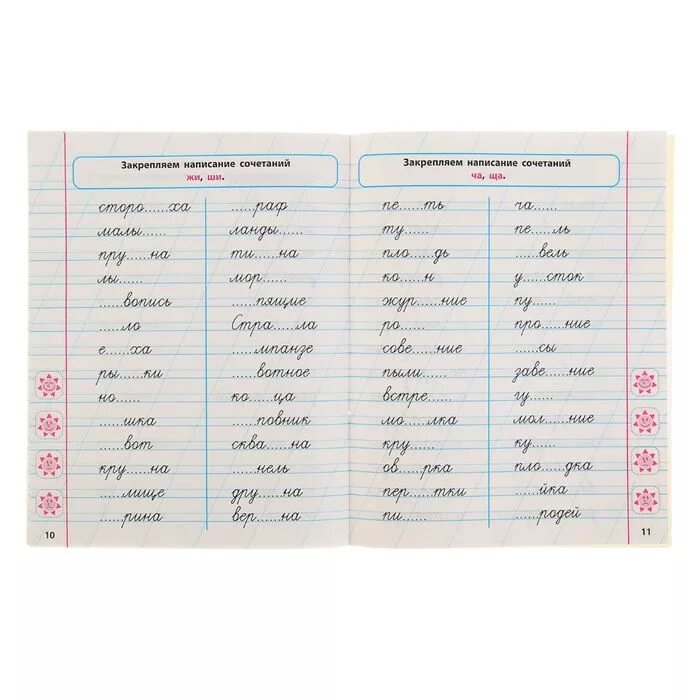 Закрепляем написание сочетаний
жи, ши.
сторо......ха ......раф
малы...... ланды......
пру......на ти......на
лы...... мор......
......вопись ......пящие
......ло Стра......ла
е......ха ......мпанзе
ры......ки ......вотное
но...... ко......ца
......шка ......повник
......вот сква......на
кру......на ......нель
......лище дру......на
......рина вер......на
10
Закрепляем написание сочетаний
ча, ща.
пе......ть ча......
ту...... пе......ль
пло......дь ......вель
ко......н у......сток
жур......ние пу......
ро...... про......ние
сове......ние ......сы
пыли...... заве......ние
встре...... гу......
мо......лка мол......ние
кру...... ку......
ов......рка пло......дка
пер......тки ......йка
пи...... ......родей
11